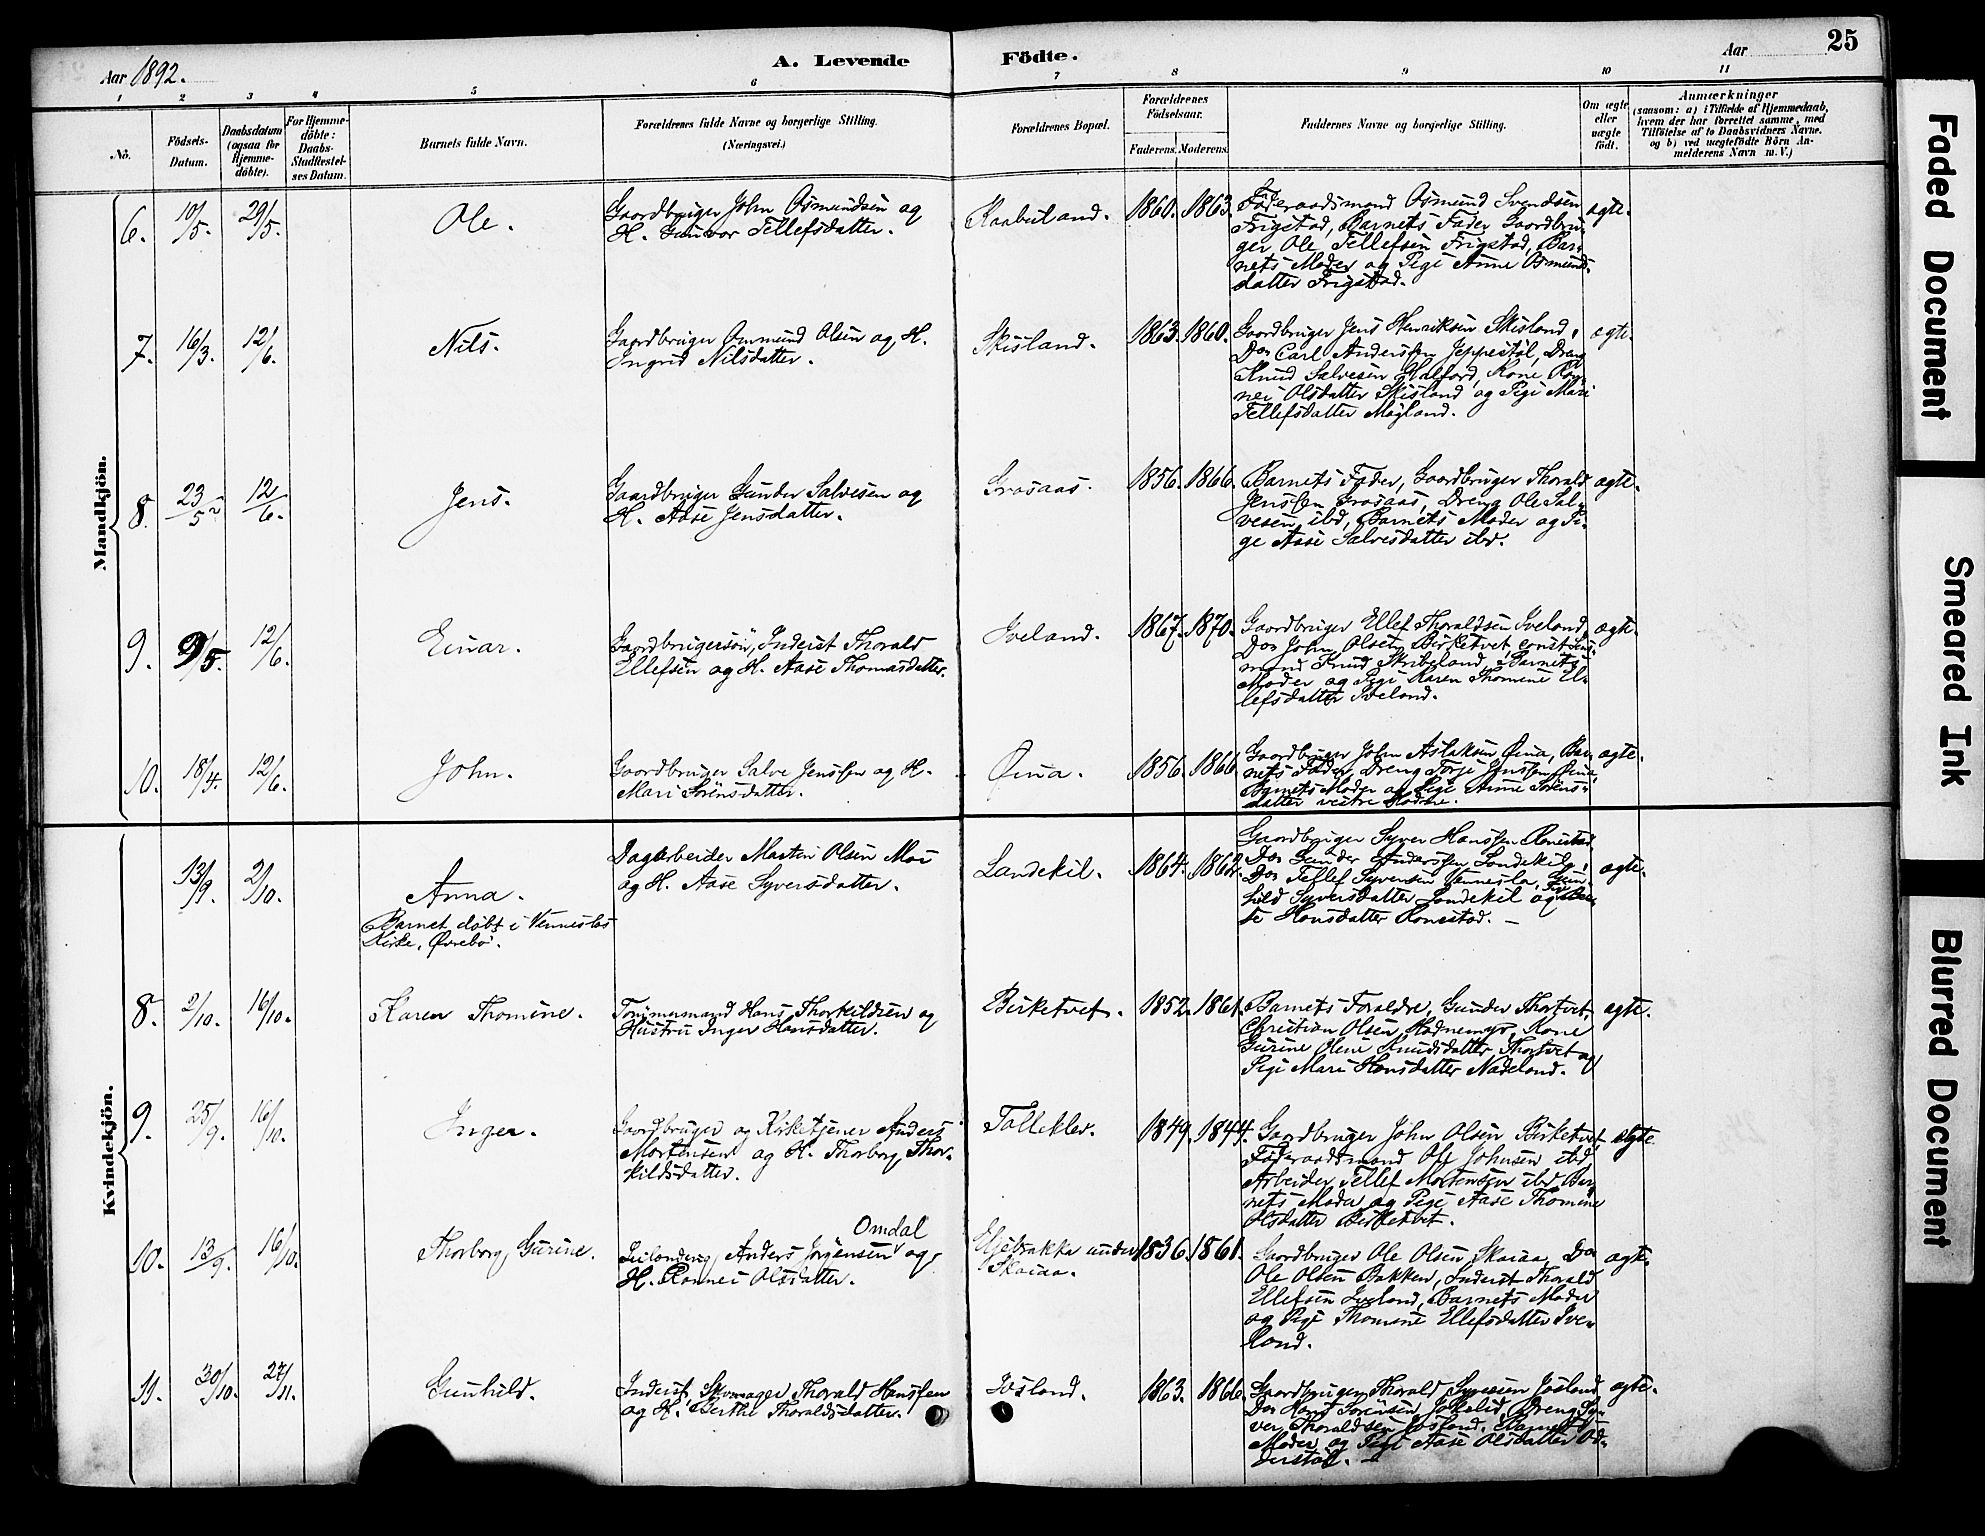 25
Aar 1892.
A. Levende
Födte.
Aar
1
2
3
4
5
6
7
8
9
10
11
No.
Födsels-
Datum.
Daabsdatum
(ogsaa for
Hjemme-
döbte).
For Hjemme-
döbte:
Daabs-
Stadfæstel-
ses Datum.
Barnets fulde Navn.
Forældrenes fulde Navne og borgerlige Stilling.
(Næringsvei.)
Forældrenes Bopæl.
Forældrenes
Födselsaar.
Faderens.
Moderens.
Faddernes Navne og borgerlige Stilling.
Om ægte
eller
uægte
födt.
Anmærkninger
(saasom: a) i Tilfælde af Hjemmedaab,
hvem der har forrettet samme, med
Tilföielse af to Daabsvidners Navne.
og b) ved uægtefödte Börn An-
melderens Navn m. V.)
Mandkjön.
6. 10/5. 29/5.
Ole.
Gaardbruger John Osmundsen og
H. Gunvor Tellefsdatter.
Kaabuland.
1860. 1863.
Føderaadsmand Osmund Svendsen
Frigstad, Barnets Fader, Gaardbru-
ger Ole Tellefsen Frigstad, Bar-
nets Moder og Pige Anne Osmunds-
datter Frigstad.
ægte.
7. 16/3. 12/6.
Nils.
Gaardbruger Ommund Olsen og H.
Ingrid Nilsdatter.
Skisland.
1863. 1860.
Gaardbruger Jens Henriksen Skisland,
Do Carl Anderssen Jeppestøl, Dreng
Knud Salvesen, Kone Ron-
nei Olsdatter Skisland og Pige Mari
Tellefsdatter Møgland.
ægte.
8. 23/5 12/6.
Jens.
Gaardbruger Gunder Salvesen og
H. Aase Jensdatter.
Grosaas.
1856. 1866.
Barnets Fader, Gaardbruger Thorald
Jenssen Grosaas, Dreng Ole Sal-
vesen ibd, Barnets Moder og Pi-
ge Aase Salvesdatter ibd.
ægte.
9. 9/5. 12/6.
Einar.
Gaardbrugersøn, Inderst Thorald
Ellefsen og H. Aase Thomasdatter.
Iveland.
1867. 1870.
Gaardbruger Ellef Thoraldsen Iveland,
Do John Olsen Birketvet,
mand Knud Skribeland, Barnets
Moder og Pige Karen Thomine El-
lefsdatter Iveland.
ægte.
10. 18/4. 12/6.
John.
Gaardbruger Salve Jenssen og H.
Mari Sørensdatter.
Øina.
1856. 1866.
Gaardbruger John Aslaksen Øina, Bar-
nets Fader, Dreng Torje Jenssen Øina,
Barnets Moder og Pige Anne Sørens-
datter vestre
ægte.
Kvindekjön.
13/9. 2/10.
Anna.
Barnet døbt i Venneslas
Kirke, Øvrebø.
Dagarbeider Martin Olsen Moi
og H. Aase Syversdatter.
Landekil.
1864. 1862.
Gaardbruger Syver Hanssen Ronestad
Do Gunder Anderssen Landekil,
Do Tellef Syversen Vennesla, Gun-
hild Syversdatter Landekil og
Hansdatter Ronestad. –
ægte.
8. 2/10. 16/10.
Karen Thomine.
Tømmermand Hans Thorkildsen og
Hustru Inger Hansdatter.
Birketvet.
1852. 1861.
Barnets Forældre, Gunder Thortvet,
Christian Olsen Hodnemyr, Kone
Gurine Olene Knudsdatter Thortvet og
Pige Mari Hansdatter Nadeland.
ægte.
9. 25/9. 16/10.
Inger.
Gaardbruger og Kirketjener Anders
Mortensen og H. Thorborg Thor-
kildsdatter.
Tolleklev.
1849. 1844.
Gaardbruger John Olsen Birketvet
Føderaadsmand Ole Johnsen ibd
Arbeider Tellef Mortensen ibd Bar-
nets Moder og Pige Aase Thomine
Olsdatter Birketvet.
ægte.
10. 13/9. 16/10.
Thorborg Gurine.
Omdal
Anders Jørgensen og
H. Ronnei Olsdatter.
under
Skaiaa.
1836. 1861.
Gaardbruger Ole Olsen Skaiaa, Do
Ole Olsen Bakken, Inderst Thorald
Ellefsen Iveland, Barnets Moder
og Pige Thomine Ellefsdatter Ive-
land.
ægte.
11. 30/10. 27/11.
Gunhild.
Inderst, Skomager Thorald Hanssen
og H. Berthe Thoraldsdatter.
Ivsland.
1863. 1866.
Gaardbruger Thorald Syversen Josland,
Do Hans Sørensen Jokelid, Dreng Sy-
ver Thoraldsen Josland, Barnets
Moder og Pige Aase Olsdatter Od-
derstøl. –
ægte.
Faded Document
Smeared Ink
Blurred Document